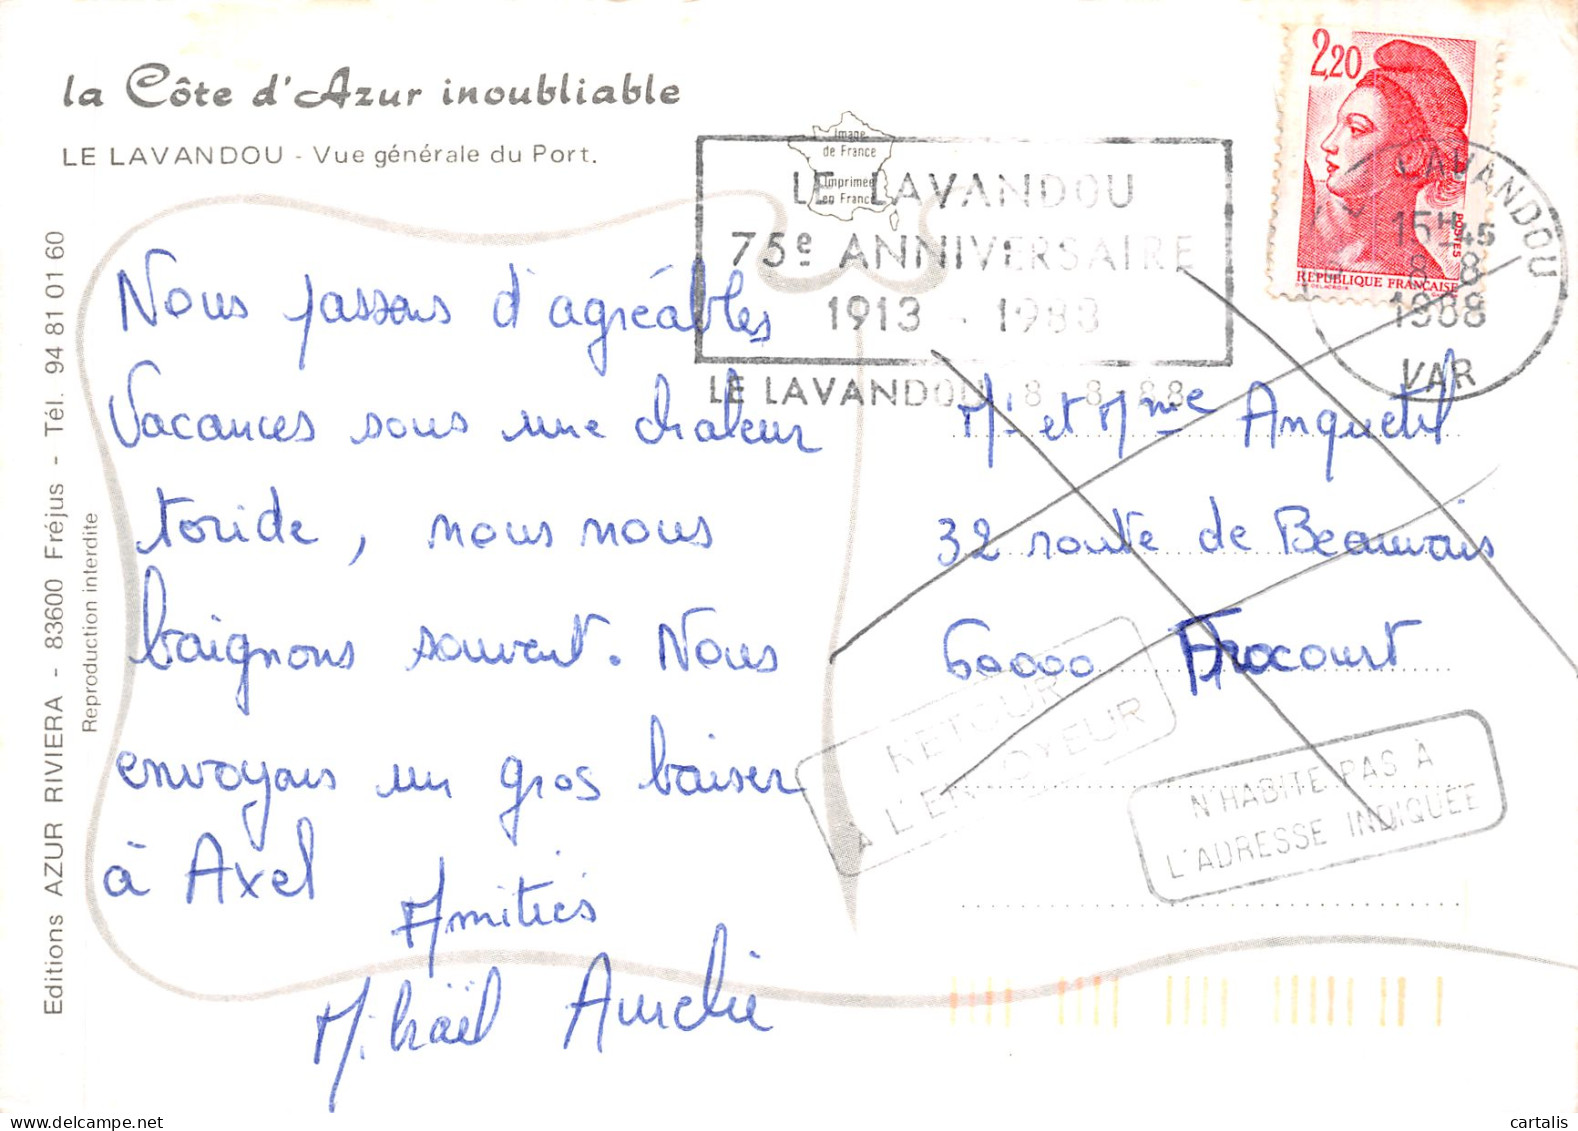 la Côte d'Azur inoubliable
LE LAVANDOU - Vue générale du Port.
Image
de France
Imprimée
en France
LE LAVANDOU
75e ANNIVERSAIRE
1913 - 1988
LE LAVANDOU 8 - 8 - 88
2,20
POSTES
REPUBLIQUE FRANÇAISE
LAVANDOU
15H45
8-8
1988
VAR
Nous passons d'agréables
Vacances sous une chaleur
toride, nous nous
baignons souvent. Nous
envoyons un gros baiser
à Axel
Amitiés
Mikaël Aurélie
Mr et Mme Anquetil
32 route de Beauvais
60000 Frocourt
RETOUR
À L'ENVOYEUR
N'HABITE PAS À
L'ADRESSE INDIQUÉE
Editions AZUR RIVIERA - 83600 Fréjus - Tél. 94 81 01 60
Reproduction interdite
cartalis